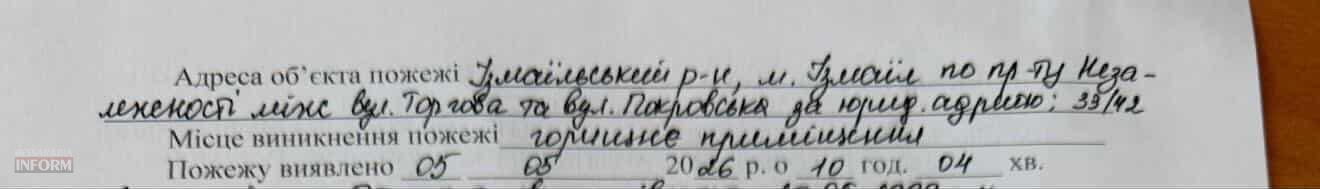 Адреса об'єкта пожежі Ізмаїльський р-н, м. Ізмаїл по пр-ту Неза-
лежності між вул. Торгова та вул. Покровська за юрид. адресою: 39/42
Місце виникнення пожежі горищне приміщення
Пожежу виявлено 05 05 2026 р. о 10 год. 04 хв.
BESSARABIA
INFORM